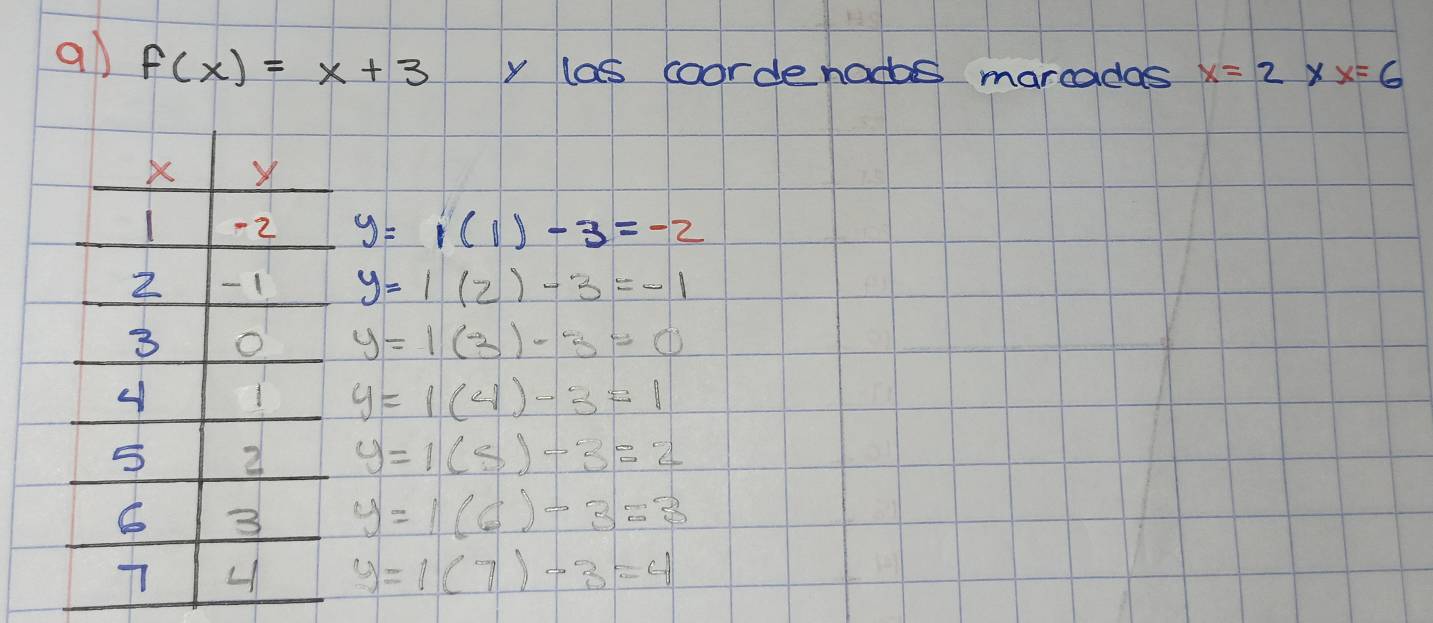 a) f(x) = x + 3 y las coordenadas marcadas x = 2 y x = 6
x y
1 -2 y = 1(1) - 3 = -2
2 -1 y = 1(2) - 3 = -1
3 0 y = 1(3) - 3 = 0
4 1 y = 1(4) - 3 = 1
5 2 y = 1(5) - 3 = 2
6 3 y = 1(6) - 3 = 3
7 4 y = 1(7) - 3 = 4